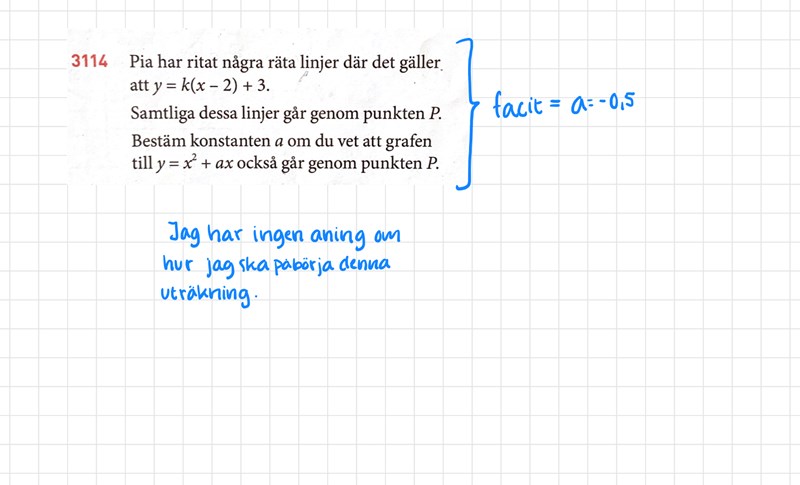 3114 Pia har ritat några räta linjer där det gäller
att y = k(x – 2) + 3.
Samtliga dessa linjer går genom punkten P.
Bestäm konstanten a om du vet att grafen
till y = x² + ax också går genom punkten P.
facit = a=-0,5
Jag har ingen aning om
hur jag ska påbörja denna
uträkning.